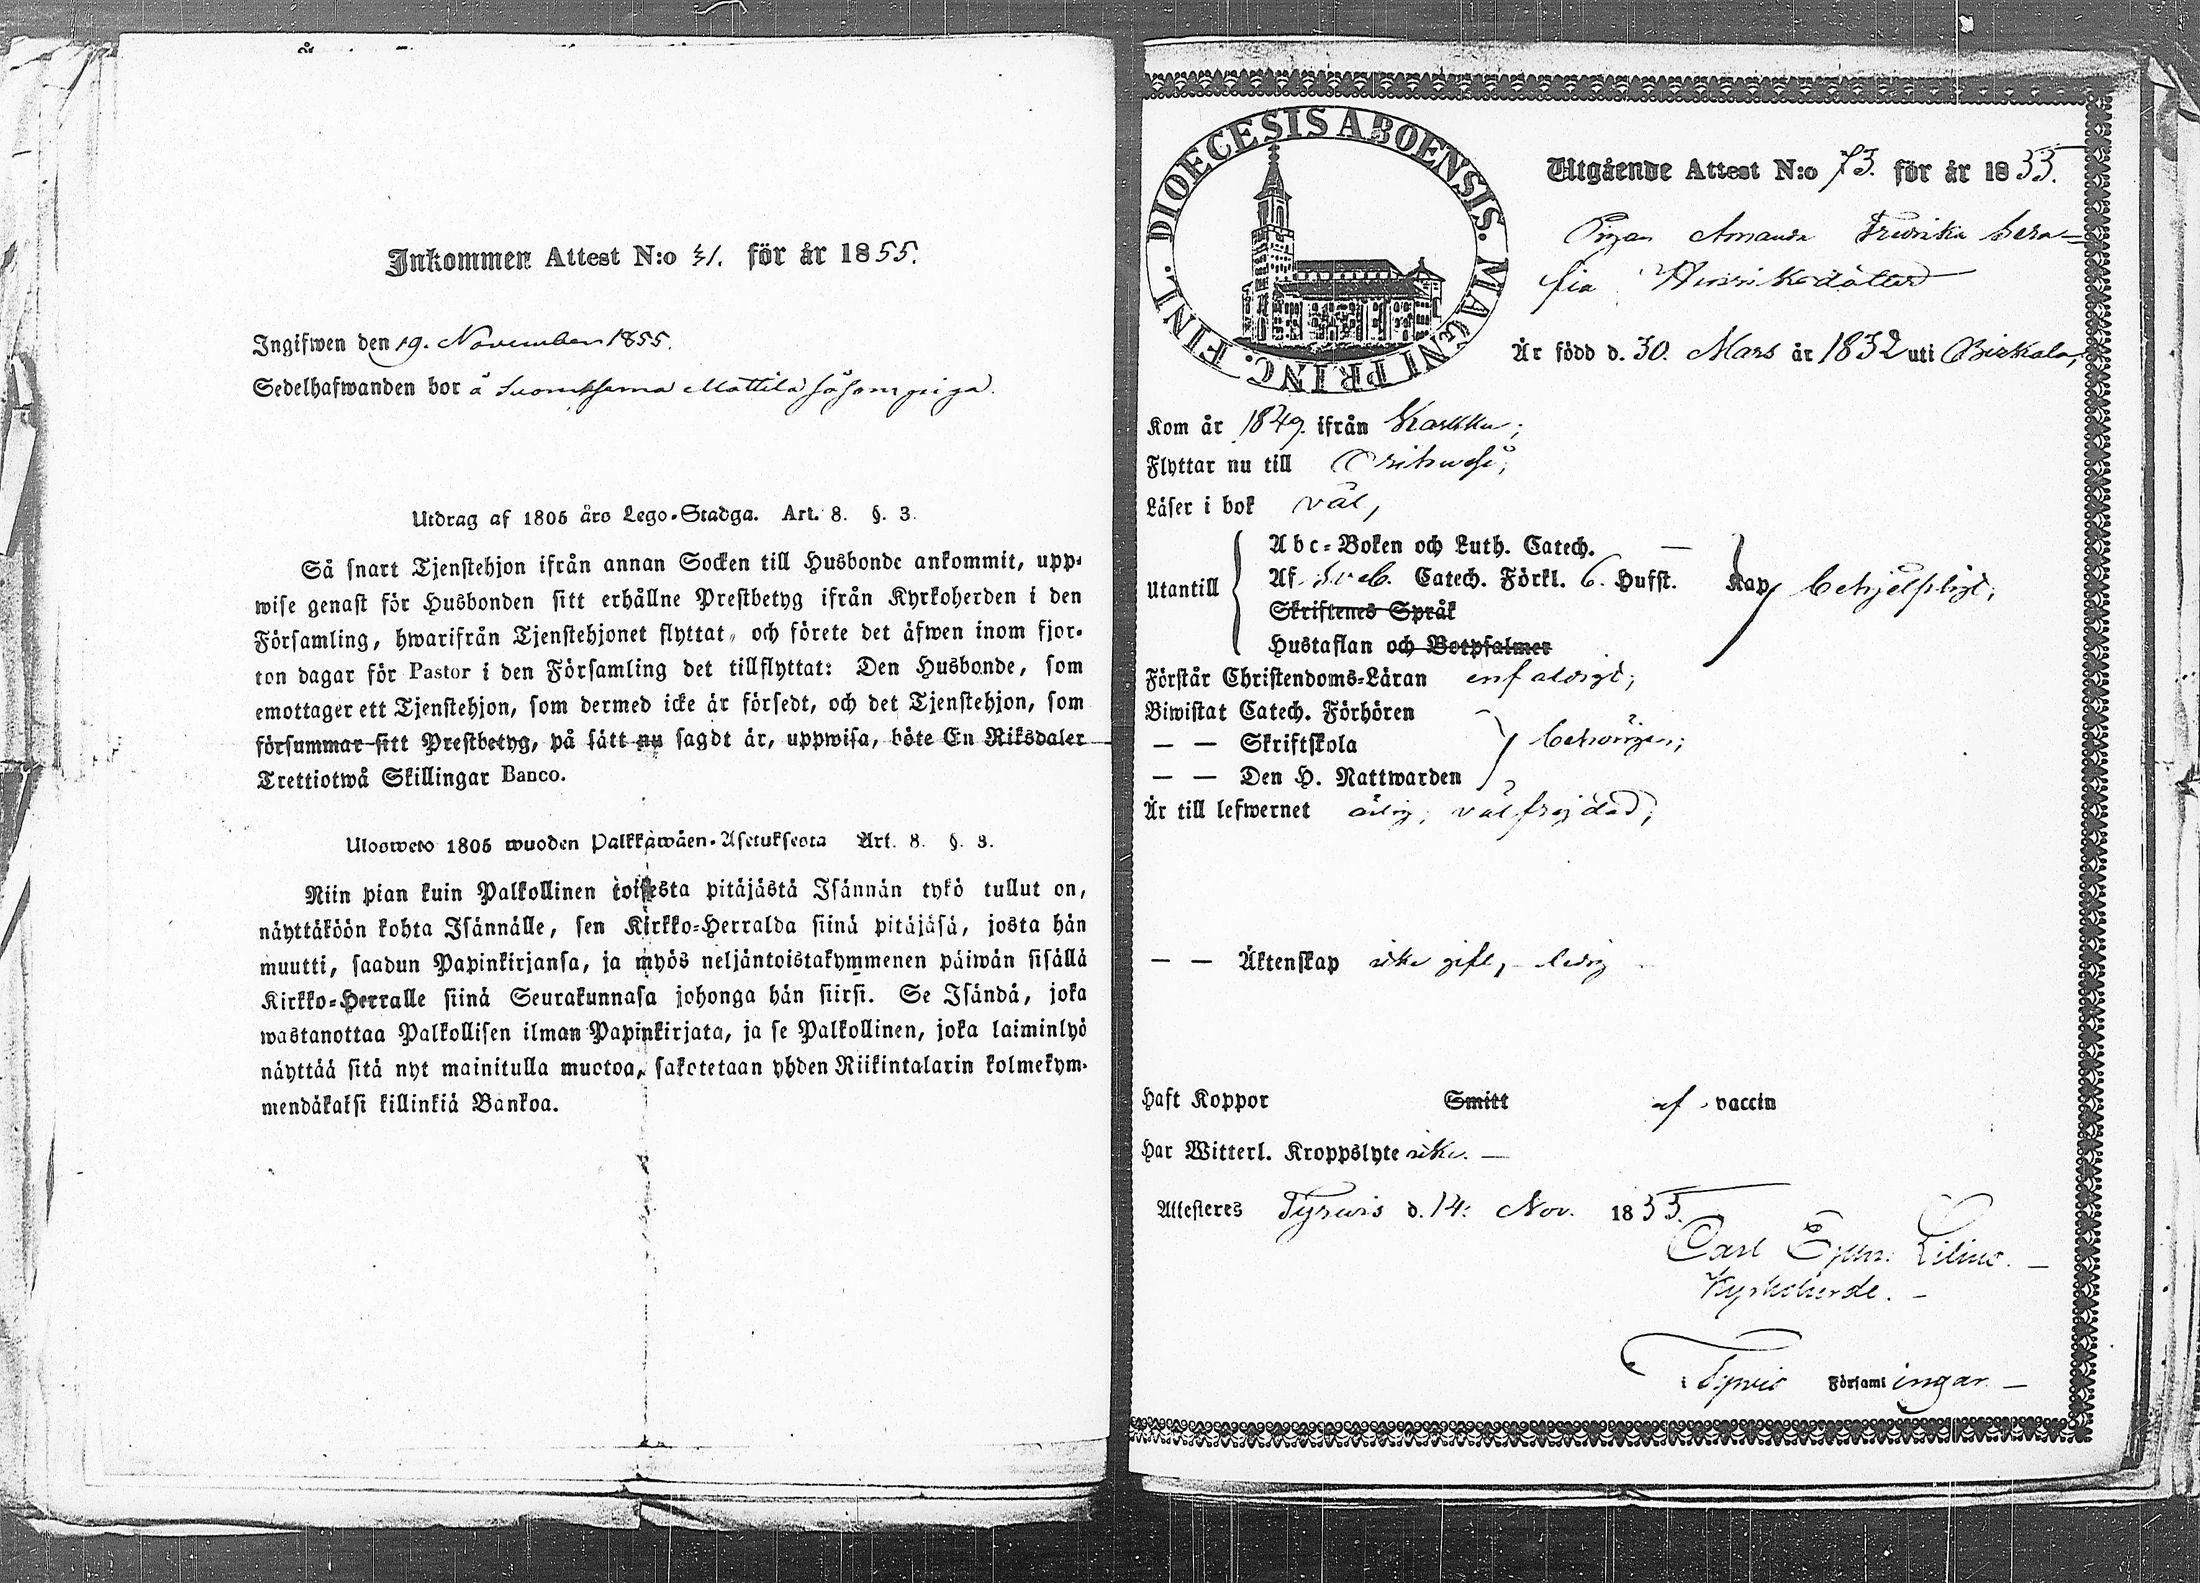 Inkommen Attest N:o 41. för år 1855.
Ingifwen den 19. November 1855.
Sedelhafwanden bor å Mattila såsom piga.
Utdrag af 1805 års Lego-Stadga. Art. 8. §. 3.
Så snart Tjenstehjon ifrån annan Socken till Husbonde ankommit, upp-
wise genast för Husbonden sitt erhållne Prestbetyg ifrån Kyrkoherden i den
Församling, hwarifrån Tjenstehjonet flyttat, och förete det äfwen inom fjor-
ton dagar för Pastor i den Församling det tillflyttat: Den Husbonde, som
emottager ett Tjenstehjon, som dermed icke är försedt, och det Tjenstehjon, som
försummar sitt Prestbetyg, på sätt nu sagdt är, uppwisa, böte En Riksdaler
Trettiotwå Skillingar Banco.
Ulosweto 1805 wuoden Palkkawäen-Asetuksesta Art. 8. §. 3.
Niin pian kuin Palkollinen toisesta pitäjästä Isännän tykö tullut on,
näyttäköön kohta Isännälle, sen Kirkko-Herralda siinä pitäjäsä, josta hän
muutti, saadun Papinkirjansa, ja myös neljäntoistakymmenen päiwän sisällä
Kirkko-Herralle siinä Seurakunnasa johonga hän siirsi. Se Isändä, joka
wastanottaa Palkollisen ilman Papinkirjata, ja se Palkollinen, joka laiminlyö
näyttää sitä nyt mainitulla muotoa, sakotetaan yhden Riikintalarin kolmekym-
mendäkaksi killinkiä Bankoa.
DIOECESIS ABOENSIS. MAGNI PRINC. FINL.
Utgående Attest N:o 73. för år 1855.
Pigan Amanda Fredrika Sera-
fia Henriksdotter
Är född d. 30. Mars år 1832 uti Birkala,
Kom år 1849. ifrån Karkku;
Flyttar nu till Orihwesi;
Läser i bok väl,
Utantill
Abc-Boken och Luth. Catech. —
Af Sveb. Catech. Förkl. 6. Hufst. Kap behjelpligt;
Skriftenes Språk
Hustaflan och Botpsalmer
Förstår Christendoms-Läran enfaldigt;
Biwistat Catech. Förhören
— — Skriftskola behörigen;
— — Den H. Nattwarden
Är till lefwernet ärlig, välfrejdad;
— — Äktenskap icke gift, ledig
Haft Koppor Smitt af vaccin
Har Witterl. Kroppslyte icke. —
Attesteres Tyrwis d. 14. Nov. 1855.
Carl Lilius. —
Kyrkoherde. —
i Tyrwis Församlingar —